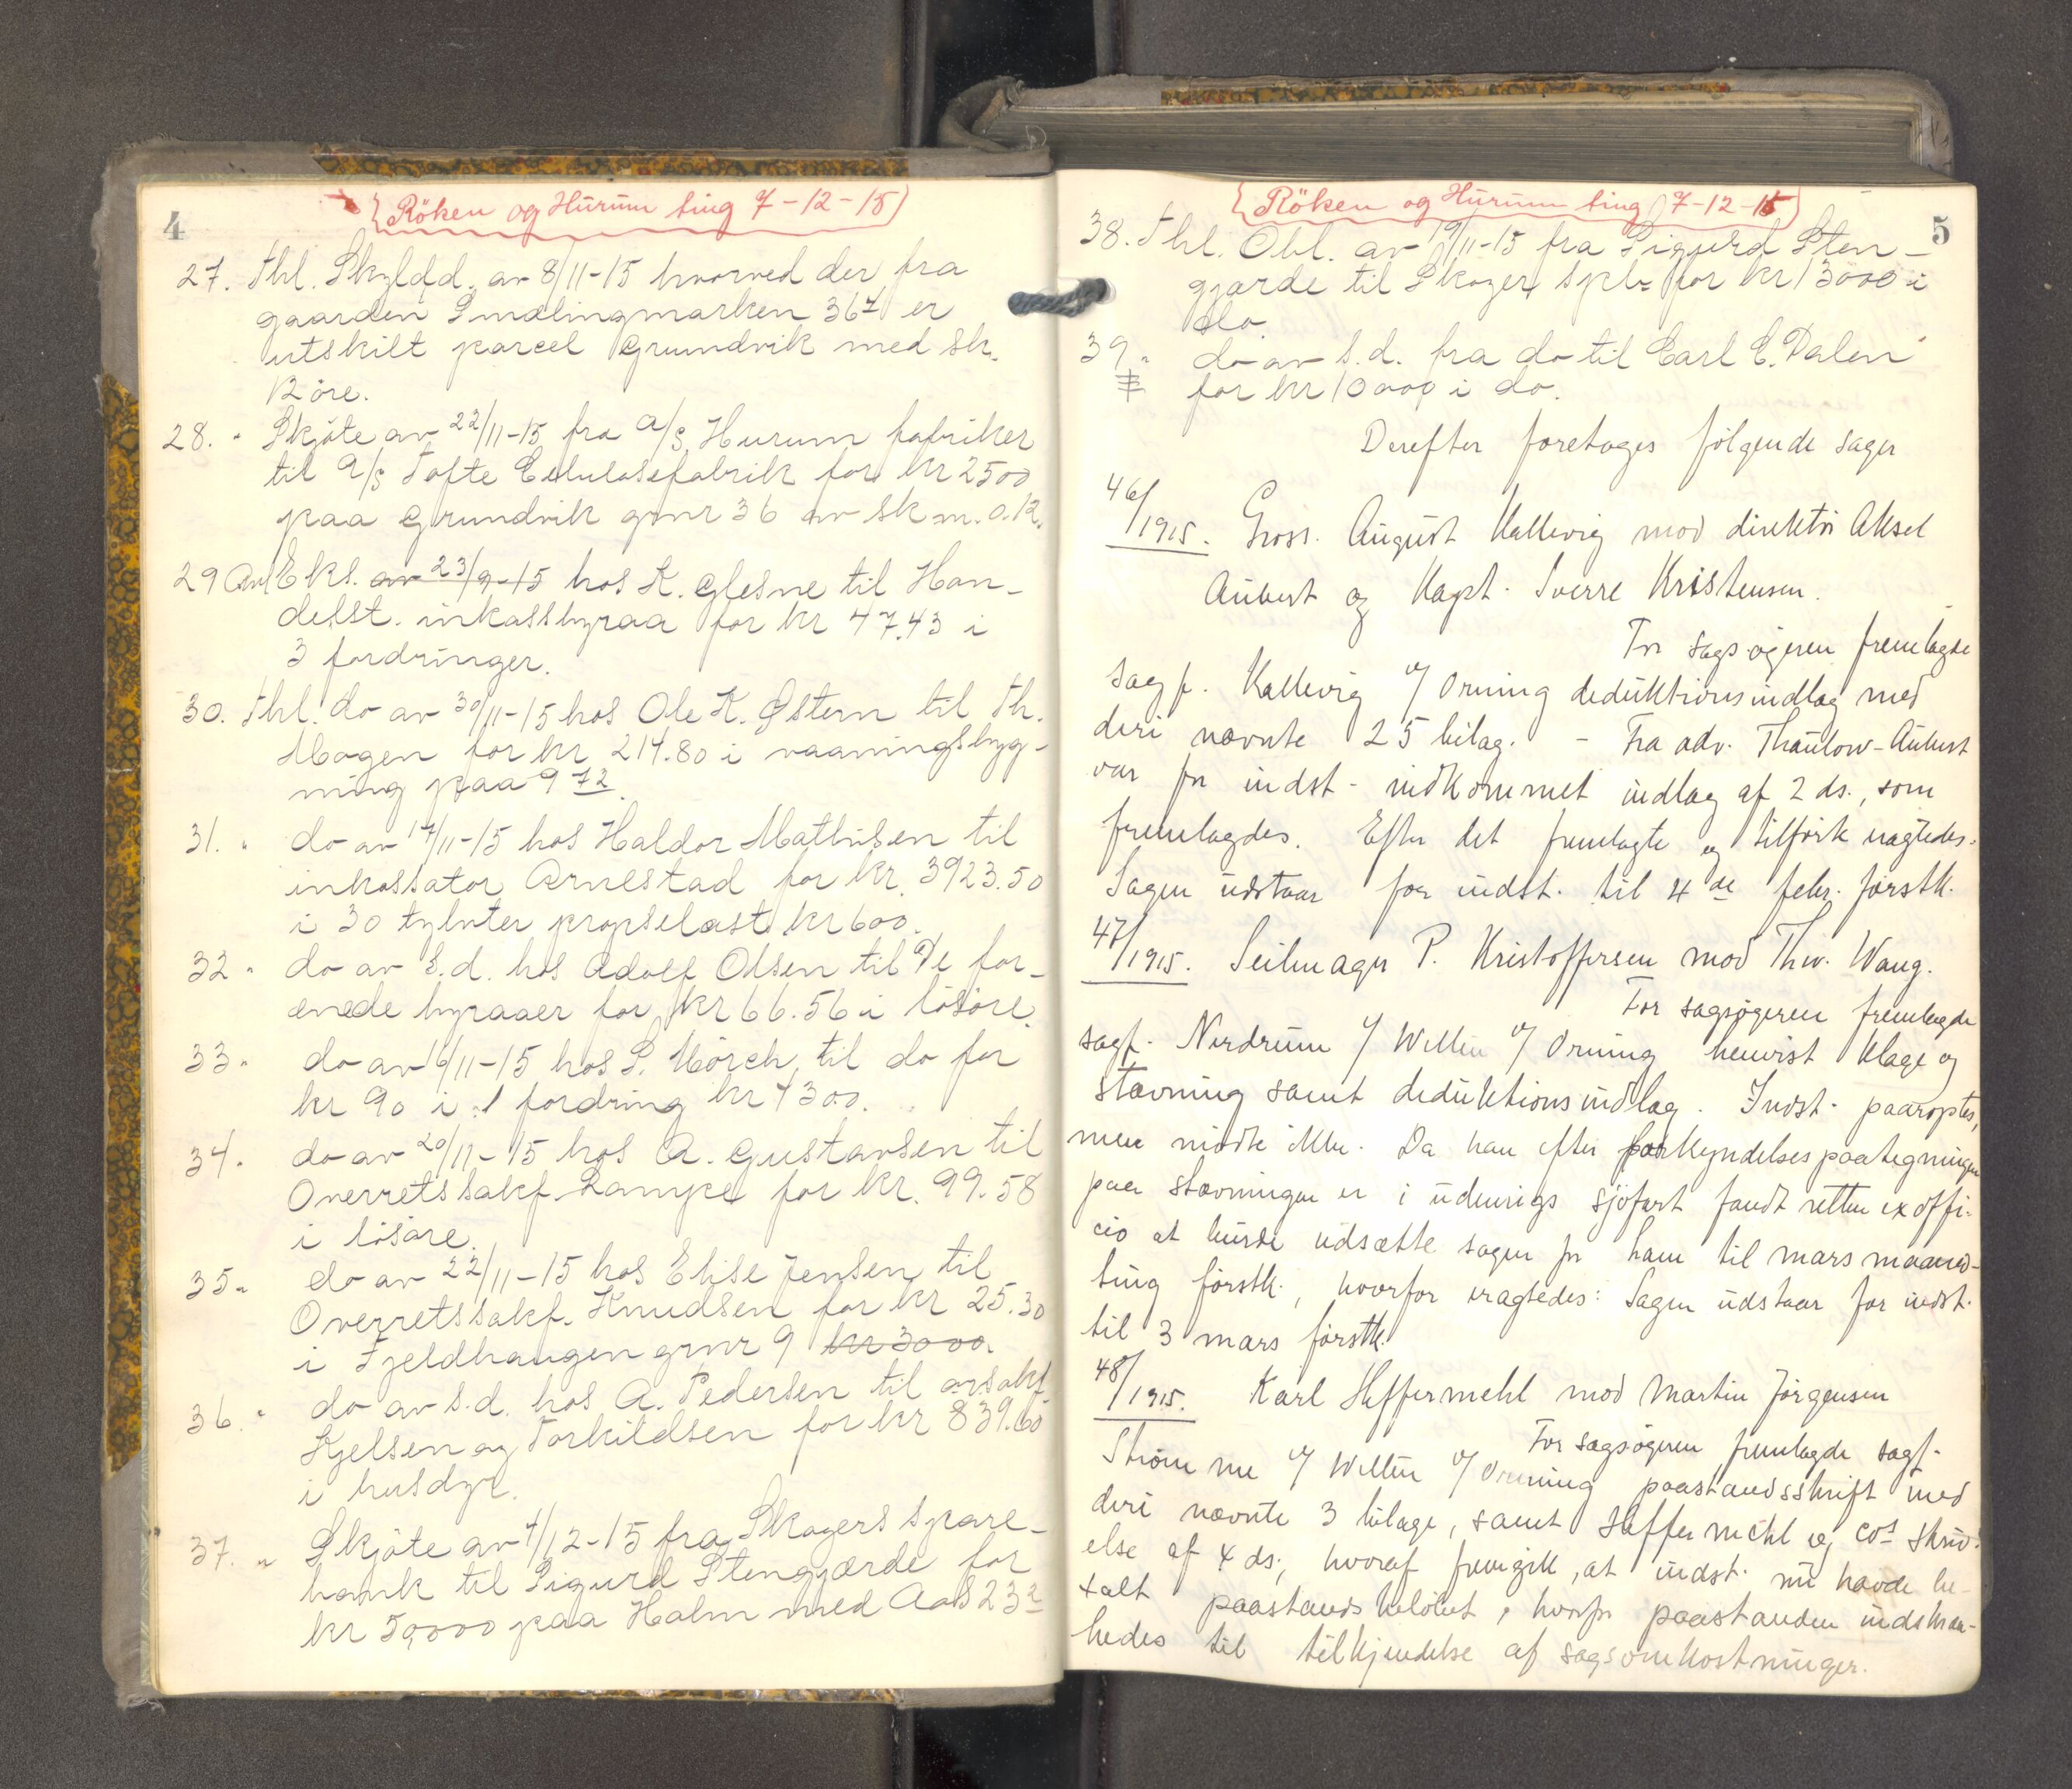 4
Röken og Hurum ting 7-12-15
27. Thl. Skyldd. av 8/11-15 hvorved der fra
gaarden Smælingmarken 36⁷ er
utskilt parcel Grundvik med sk.
12 öre.
28. " Skjöte av 22/11-15 fra A/S Hurum fabriker
til A/S Tofte Cellulosefabrik for kr 2500
paa Grundvik gnr 36 av sk m. 0.12.
29 Anl Eks. av 23/9-15 hos K. Glesne til Han-
delsst. inkassbyraa for kr 47.43 i
3 fordringer.
30. Thl. do av 30/11-15 hos Ole K. Østern til Th.
Mogen for kr 214.80 i vaaningsbyg-
ning paa 9 72.
31. " do av 17/11-15 hos Haldor Mathisen til
inkassator Arnestad for kr. 3923.50
i 30 tylvter propselast kr 600.
32 " do av s.d. hos Adolf Olsen til De for-
enede byraaer for kr 66.56 i lösöre.
33 " do av 16/11-15 hos S. Mörch til do for
kr 90 i 1 fordring kr 4300.
34. " do av 20/11-15 hos A. Gustavsen til
Overretssakf. Lampe for kr. 99.58
i lösöre.
35 " do av 22/11-15 hos Elise Jensen til
Overretssakf. Knudsen for kr 25.30
i Fjeldhaugen gnr 9 kr 3000.
36. " do av s.d. hos A. Pedersen til orsakf.
Kjelsen og Torkildsen for kr 839.60
i husdyr.
37. " Skjöte av 4/12-15 fra Skogers spare-
bank til Sigurd Stengjærde for
kr 50000 paa Holm med Aas 23²
5
Röken og Hurum ting 7-12-15
38. Thl. Obl. av 19/11-15 fra Sigurd Sten-
gjærde til Skoger spb. for kr 13000 i
do.
39. " do av s.d. fra do til Carl E. Dalen
for kr 10000 i do.
Derefter foretoges fölgende sager
46/1915. Gross. August Kallevig mod direktör Aksel
Aubert og Kapt. Sverre Kristensen.
For sagsøgeren fremlagde
sagf. Kallevig v/ Orning deduktionsindlæg med
deri nævnte 25 bilag. - Fra adv. Thaulow-Aubert
var for indst. indkommet indlæg af 2 ds., som
fremlagdes. Efter det fremlagte og tilførte eragtedes:
Sagen udstaar for indst. til 4de febr. førstk.
47/1915. Seilmager P. Kristoffersen mod Thv. Wang.
For sagsøgeren fremlagde
sagf. Nerdrum v/ Willin v/ Orning henvist klage og
stævning samt deduktionsindlæg. Indst. paaroptes,
men mødte ikke. Da han efter forkyndelsespaategningen
paa stævningen er i udenrigs sjøfart fandt retten ex offi-
cio at burde udsætte sagen for ham til mars maaneds-
ting førstk., hvorfor eragtedes: Sagen udstaar for indst.
til 3 mars førstk.
48/1915. Karl Heffermehl mod Martin Jørgensen
For sagsøgeren fremlagde sagf.
Strømme v/ Willin v/ Orning paastandsskrift med
deri nævnte 3 bilage, samt Heffermehl og Cos skriv-
else af 4 ds., hvoraf fremgik, at indst. nu havde be-
talt paastandsbeløbet, hvorfor paastanden indskræn-
kedes til tilkjendelse af sagsomkostninger.